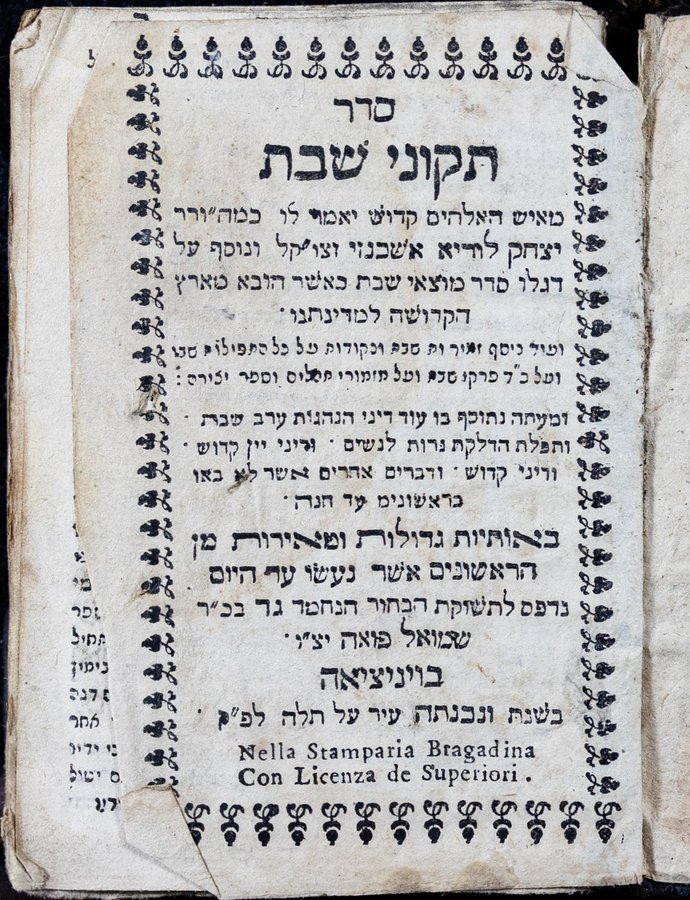 סדר
תקוני שבת
מאיש האלהים קדוש יאמר לו כמה״ורר
יצחק לוריא אשכנזי זצו״קל ונוסף על
דגלו סדר מוצאי שבת כאשר הובא מארץ
הקדושה למדינתנו·
ועוד ניסף ונקודות על כל התפילות
ועל כ״ד פרקי שבת ועל מזמורי תהלים וספר יצירה:
ומעתה נתוסף בו עוד דיני הנהגות ערב שבת ·
ותפלת הדלקת נרות לנשים · ודיני יין קדוש ·
ודיני קדוש · ודברים אחרים אשר לא באו
בראשונים עד הנה·
באותיות גדולות ומאירות מן
הראשונים אשר נעשו עד היום
נדפס לתשוקת הבחור הנחמד גד בכ״ר
שמואל פואה יצ״ו ·
בויניציאה
בשנת ונבנתה עיר על תלה לפ״ק ·
Nella Stamparia Bragadina
Con Licenza de Superiori .
מי
ספר
תחיל
אחר